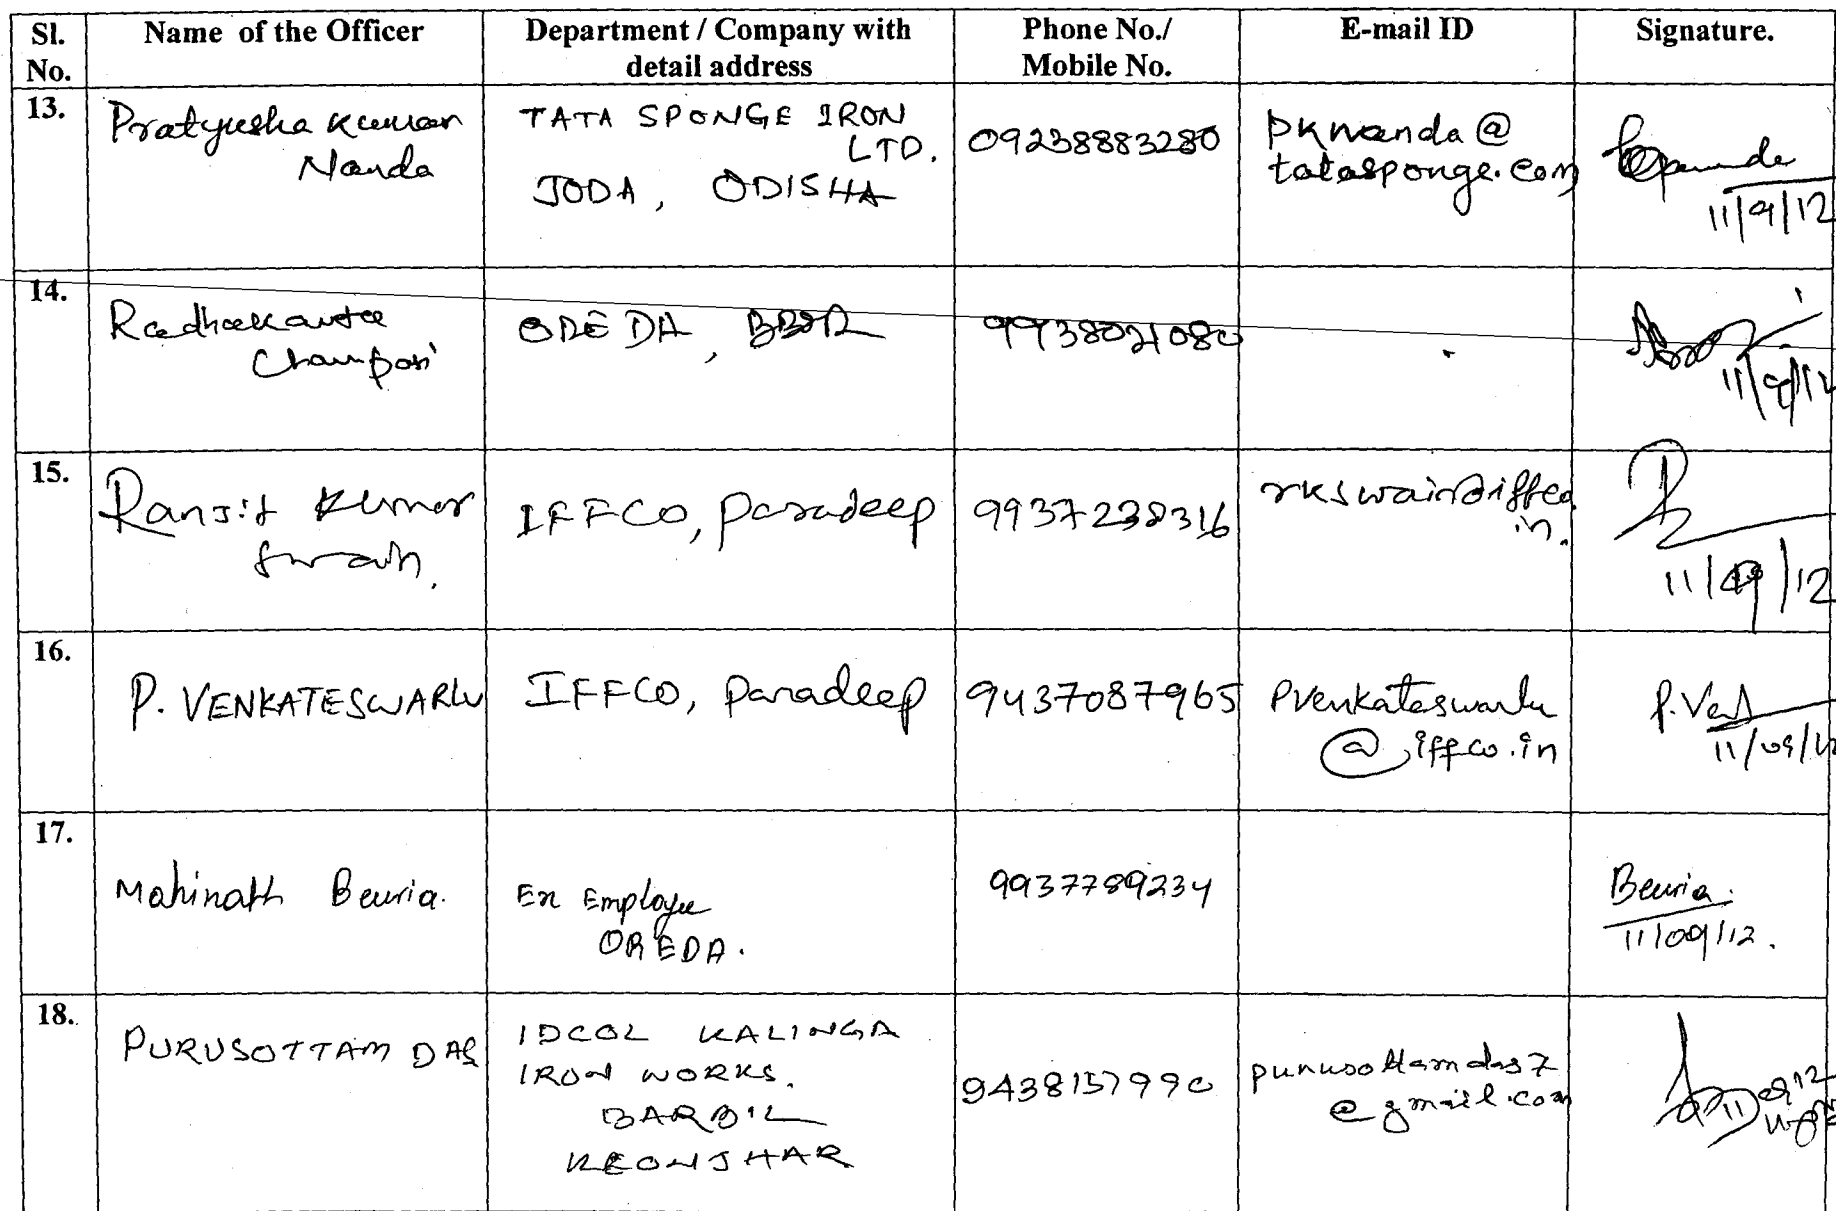 Sl. No. Name of the Officer Department / Company with detail address Phone No./ Mobile No. E-mail ID Signature.
13. Pratyusha Kumar Nanda TATA SPONGE IRON LTD. JODA, ODISHA 09238883280 pknanda@ tatasponge.com 11/9/12
14. Radhakanta Champati OREDA, BBSR 9938021080 11/9/12
15. Ranjit Kumar Swain. IFFCO, Paradeep 9937238316 rkswain@iffco.in. 11/09/12
16. P. VENKATESWARLU IFFCO, Paradeep 9437087965 pvenkateswarlu @iffco.in P.Ven 11/09/12
17. Mahinath Beuria. Ex Employee OREDA. 9937789234 Beuria. 11/09/12.
18. PURUSOTTAM DAS IDCOL KALINGA IRON WORKS. BARBIL KEONJHAR 9438157990 purusottamdas7 @gmail.com